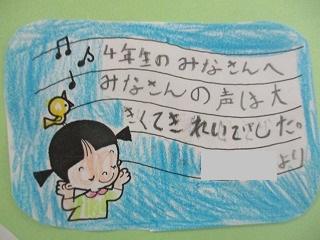 4年生のみなさんへ
みなさんの声は大
きくてきれいでした。
より